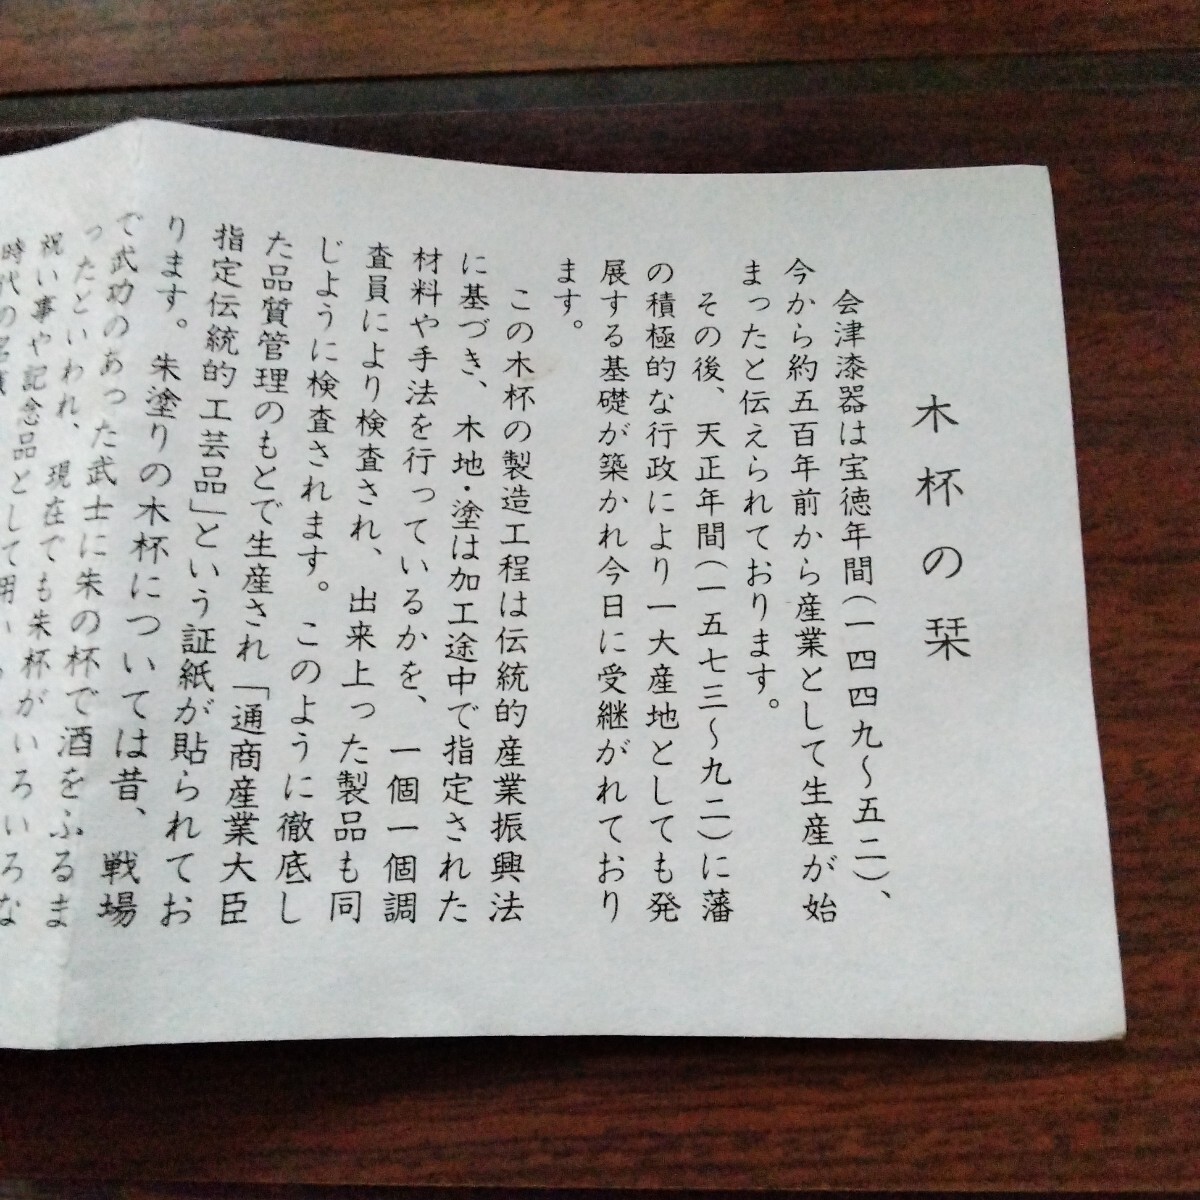 木杯の栞
会津漆器は宝徳年間(一四四九〜五二)、
今から約五百年前から産業として生産が始
まったと伝えられております。
その後、天正年間(一五七三〜九二)に藩
の積極的な行政により一大産地としても発
展する基礎が築かれ今日に受継がれており
ます。
この木杯の製造工程は伝統的産業振興法
に基づき、木地・塗は加工途中で指定された
材料や手法を行っているかを、一個一個調
査員により検査され、出来上った製品も同
じように検査されます。このように徹底し
た品質管理のもとで生産され「通商産業大臣
指定伝統的工芸品」という証紙が貼られてお
ります。朱塗りの木杯については昔、戦場
で武功のあった武士に朱の杯で酒をふるま
ったといわれ、現在でも朱杯がいろいろな
祝い事や記念品として用い
時代の